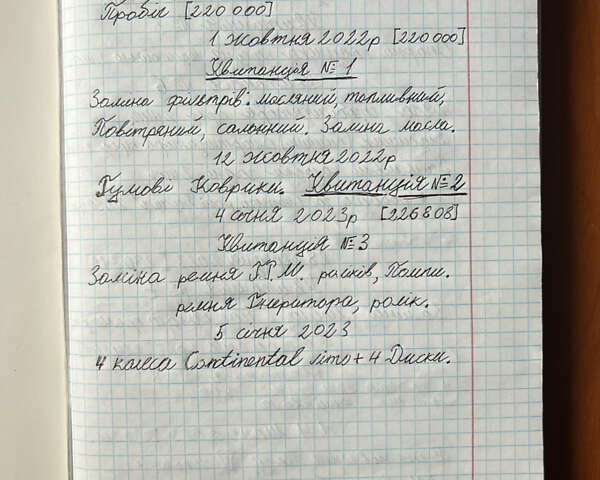 Пробіг [220 000]
1 жовтня 2022р [220 000]
Квитанція № 1
Заміна фільтрів: масляний, топливний,
Повітряний, салонний. Заміна масла.
12 жовтня 2022р
Гумові Коврики. Квитанція № 2
4 січня 2023р [226808]
Квитанція № 3
Заміна ремня Г.Р.М. роликів, Помпи.
ремня Генератора, ролік.
5 січня 2023
4 колеса Continental літо + 4 Диски.